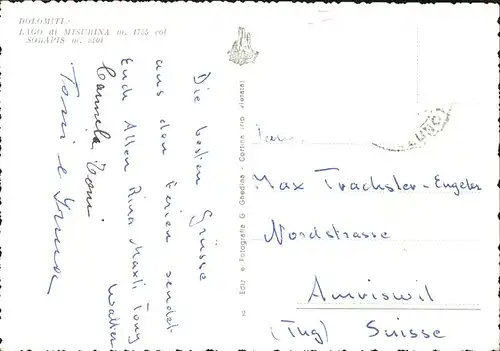 DOLOMITI:
LAGO di MISURINA m. 1755 col
SORAPIS m. 3201
Die besten Grüsse
aus den Ferien sendet
Euch Allen Rina Maxli Tony
Walter
Toni
Toni e
Ediz. e Fotografia G. Ghedina - Cortina
Max Trachsler-Engeler
Nordstrasse
Amriswil
(Tug) Suisse